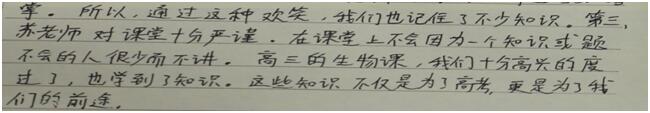 掌。所以,通过这种欢笑,我们也记住了不少知识。第三,
苏老师对课堂十分严谨。在课堂上不会因为一个知识或题
不会的人很少而不讲。高三的生物课,我们十分高兴的度
过了,也学到了知识。这些知识不仅是为了高考,更是为了我
们的前途。